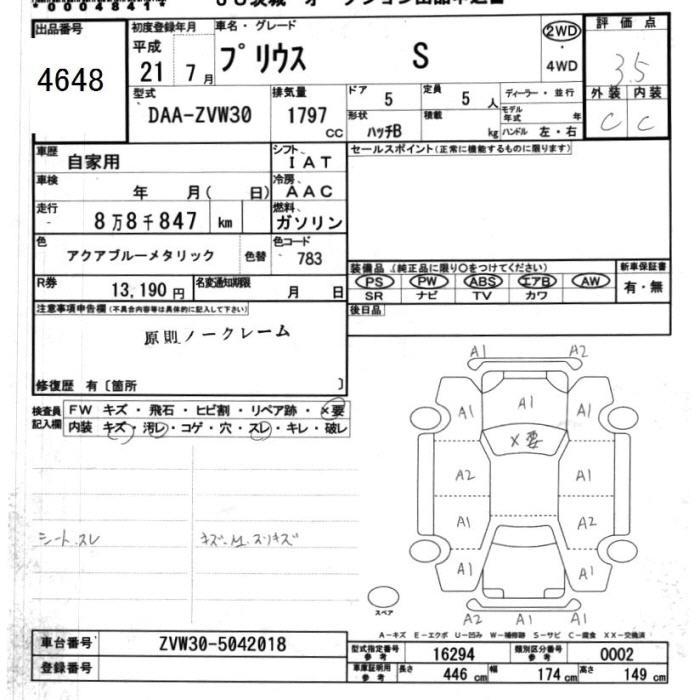 *0004841*
出品番号
4648
初度登録年月
平成
21 7月
車名・グレード
プリウス S
2WD
・
4WD
評価点
3.5
外装 内装
C C
型式
DAA-ZVW30
排気量
1797
CC
ドア 5
定員 5 人
形状 ハッチB
積載 kg
ディーラー・並行
モデル年式 年
ハンドル 左・右
車歴 自家用
シフト
IAT
車検 年 月( 日)
冷房
AAC
走行 8万8千847 km
燃料
ガソリン
色 アクアブルーメタリック 色替
色コード
783
R券 13,190円
名変通知期限 月 日
セールスポイント(正常に機能するものに限ります)
装備品(純正品に限り○をつけてください)
PS PW ABS エアB AW
SR ナビ TV カワ
新車保証書
有・無
後日品
注意事項申告欄(不具合内容等は具体的に記入して下さい)
原則ノークレーム
修復歴 有〔箇所 〕
検査員
記入欄
FW キズ・飛石・ヒビ割・リペア跡・×要
内装 キズ・汚レ・コゲ・穴・スレ・キレ・破レ
シート スレ
A1 A2
A1 A1 A1
×要
A2 A1
A1 A2
A1 A1
A2 A1 A1
スペア
A－キズ E－エクボ U－凹み W－補修跡 S－サビ C－腐食 XX－交換済
車台番号 ZVW30-5042018
登録番号
型式指定番号
参考
16294
類別区分番号
参考
0002
車庫証明用
参考
長さ 446 cm 幅 174 cm 高さ 149 cm